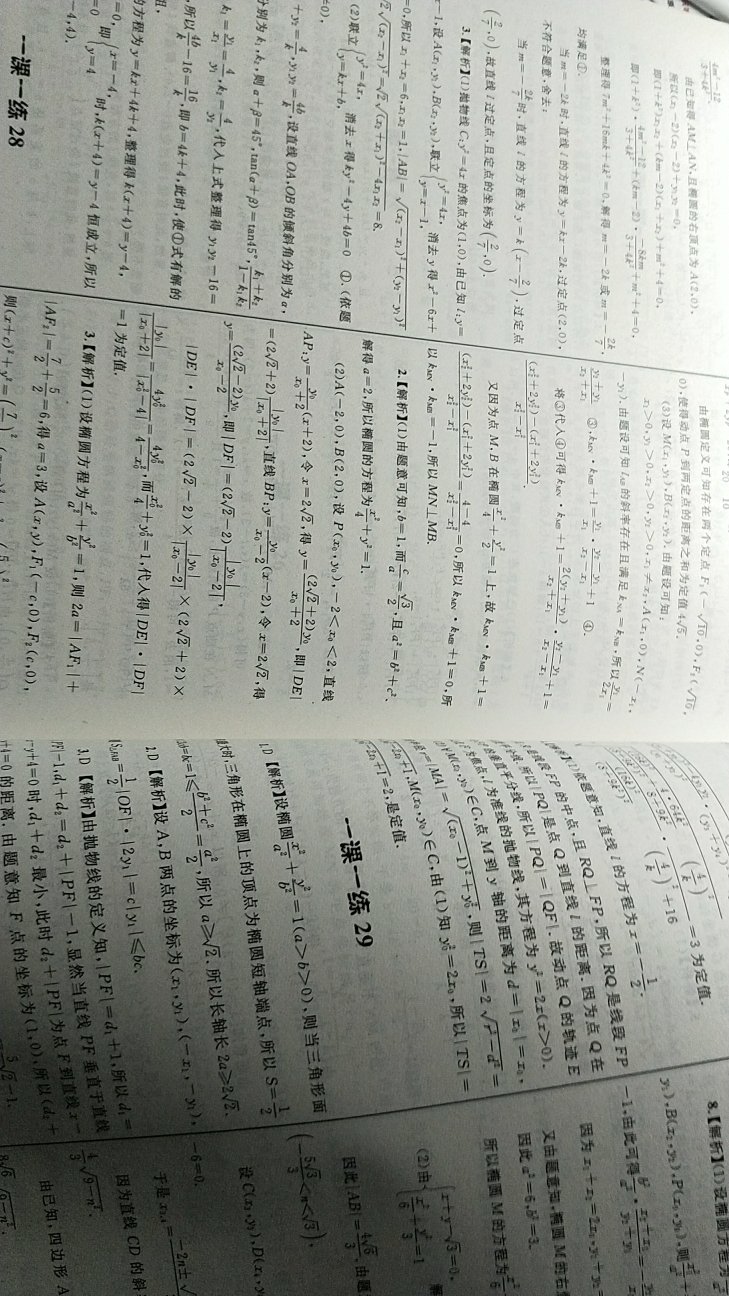 由已知得 AM⊥AN,且椭圆的右顶点为 A(2,0),
所以(x₁-2)(x₂-2)+y₁y₂=0,
即(1+k²)x₁x₂+(km-2)(x₁+x₂)+m²+4=0,
即(1+k²)·\frac{4m²-12}{3+4k²}+(km-2)·\frac{-8km}{3+4k²}+m²+4=0,
整理得 7m²+16mk+4k²=0,解得 m=-2k 或 m=-\frac{2k}{7},
均满足①.
当 m=-2k 时,直线 l 的方程为 y=kx-2k,过定点(2,0),
不符合题意,舍去;
当 m=-\frac{2k}{7}时,直线 l 的方程为 y=k(x-\frac{2}{7}),过定点
(\frac{2}{7},0),故直线 l 过定点,且定点的坐标为(\frac{2}{7},0).
3.【解析】(1)抛物线 C:y²=4x 的焦点为(1,0),由已知 l:y=
x-1,设 A(x₁,y₁),B(x₂,y₂),联立{y²=4x, y=x-1, 消去 y 得 x²-6x+
=0,所以 x₁+x₂=6,x₁x₂=1,|AB|=√((x₂-x₁)²+(y₂-y₁)²)
√2√(x₂-x₁)²=√2√((x₂+x₁)²-4x₁x₂)=8.
(2)联立{y²=4x, y=kx+b, 消去 x 得 ky²-4y+4b=0 ①,(依题
+y₂=\frac{4}{k},y₁y₂=\frac{4b}{k},设直线 OA,OB 的倾斜角分别为 α,
分别为 k₁,k₂,则 α+β=45°,tan(α+β)=tan45°,\frac{k₁+k₂}{1-k₁k₂}
k₁=\frac{y₁}{x₁}=\frac{4}{y₁},k₂=\frac{4}{y₂},代入上式整理得 y₁y₂-16=
,所以\frac{4b}{k}-16=\frac{16}{k},即 b=4k+4,此时,使①式有解的
的方程为 y=kx+4k+4,整理得 k(x+4)=y-4,
=0, 即{x=-4, y=4 时,k(x+4)=y-4 恒成立,所以
-4,4).
一课一练 28
由椭圆定义可知存在两个定点 F₁(-√10,0),F₂(√10,
0),使得动点 P 到两定点的距离之和为定值 4√5.
(3)设 M(x₁,y₁),B(x₂,y₂),由题设可知:
x₁>0,y₁>0,x₂>0,y₂>0,x₁≠x₂,A(x₁,0),N(-x₁,
-y₁),由题设可知 l_{AB}的斜率存在且满足 k_{NA}=k_{NB},所以\frac{y₁}{2x₁}=
\frac{y₂+y₁}{x₂+x₁} ③,k_{MN}·k_{MB}+1=\frac{y₁}{x₁}·\frac{y₂-y₁}{x₂-x₁}+1 ④.
将③代入④可得 k_{MN}·k_{MB}+1=\frac{2(y₂+y₁)}{x₂+x₁}·\frac{y₂-y₁}{x₂-x₁}+1=
\frac{(x₂²+2y₂²)-(x₁²+2y₁²)}{x₂²-x₁²},
又因为点 M,B 在椭圆\frac{x²}{4}+\frac{y²}{2}=1 上,故 k_{MN}·k_{MB}+1=
\frac{(x₂²+2y₂²)-(x₁²+2y₁²)}{x₂²-x₁²}=\frac{4-4}{x₂²-x₁²}=0,所以 k_{MN}·k_{MB}+1=0,所
以 k_{MN}·k_{MB}=-1,所以 MN⊥MB.
2.【解析】(1)由题意可知,b=1,而\frac{c}{a}=\frac{√3}{2},且 a²=b²+c²,
解得 a=2,所以椭圆的方程为\frac{x²}{4}+y²=1.
(2)A(-2,0),B(2,0),设 P(x₀,y₀),-2<x₀<2,直线
AP:y=\frac{y₀}{x₀+2}(x+2),令 x=2√2,得 y=\frac{(2√2+2)y₀}{x₀+2},即|DE|
=(2√2+2)\frac{|y₀|}{|x₀+2|},直线 BP:y=\frac{y₀}{x₀-2}(x-2),令 x=2√2,得
y=\frac{(2√2-2)y₀}{x₀-2},即|DF|=(2√2-2)\frac{|y₀|}{|x₀-2|},
|DE|·|DF|=(2√2-2)×\frac{|y₀|}{|x₀-2|}×(2√2+2)×
\frac{|y₀|}{|x₀+2|}=\frac{4y₀²}{|x₀²-4|}=\frac{4y₀²}{4-x₀²},而\frac{x₀²}{4}+y₀²=1,代入得|DE|·|DF|
=1 为定值.
3.【解析】(1)设椭圆方程为\frac{x²}{a²}+\frac{y²}{b²}=1,则 2a=|AF₁|+
|AF₂|=\frac{7}{2}+\frac{5}{2}=6,得 a=3,设 A(x,y),F₁(-c,0),F₂(c,0),
则(x+c)²+y²=(\frac{7}{2})²
=3 为定值.
(1)依题意知,直线 l 的方程为 x=-\frac{1}{2}.
线段 FP 的中点,且 RQ⊥FP,所以 RQ 是线段 FP
的垂直平分线,所以|PQ|=|QF|,故动点 Q 的轨迹 E
为焦点,l 为准线的抛物线,其方程为 y²=2x(x>0).
M(x₀,y₀)∈C,点 M 到 y 轴的距离为 d=|x₀|=x₀,
r=|MA|=√((x₀-1)²+y₀²),则|TS|=2√(r²-d²)=
-2x₀+1,M(x₀,y₀)∈C,由(1)知 y₀²=2x₀,所以|TS|=
-2x₀+1=2,是定值.
一课一练 29
1.D 【解析】设椭圆\frac{x²}{a²}+\frac{y²}{b²}=1(a>b>0),则当三角形面
最大时,三角形在椭圆上的顶点为椭圆短轴端点,所以 S=\frac{1}{2}
×2c×b=bc=1≤\frac{b²+c²}{2}=\frac{a²}{2},所以 a≥√2,所以长轴长 2a≥2√2.
2.D 【解析】设 A,B 两点的坐标为(x₁,y₁),(-x₁,-y₁),
S_{△FAB}=\frac{1}{2}|OF|·|2y₁|=c|y₁|≤bc.
3.D 【解析】由抛物线的定义知,|PF|=d₁+1,所以 d₁=
|PF|-1,d₁+d₂=d₂+|PF|-1,显然当直线 PF 垂直于直线
x-y+4=0 时,d₁+d₂ 最小,此时 d₂+|PF|为点 F 到直线 x-
y+4=0 的距离,由题意知 F 点的坐标为(1,0),所以(d₂+
8.【解析】(1)设椭圆方程为
y₁),B(x₂,y₂),P(x₀,y₀),则
-1,由此可得
因为 x₁+x₂=2x₀,y₁+y₂=
又由题意知,椭圆 M 的右
因此 a²=6,b²=3.
所以椭圆 M 的方程为\frac{x²}{6}
(2)由{x+y-√3=0, \frac{x²}{6}+\frac{y²}{3}=1
因此|AB|=\frac{4√6}{3},由题
设 C(x₃,y₃),D(x₄,y₄
(-\frac{5√3}{3}<n<√3),
-6=0.
于是 x₃,₄=\frac{-2n±√
因为直线 CD 的斜
\frac{4}{3}√(9-n²).
由已知,四边形 A
\frac{8√6}{9}√(9-n²),